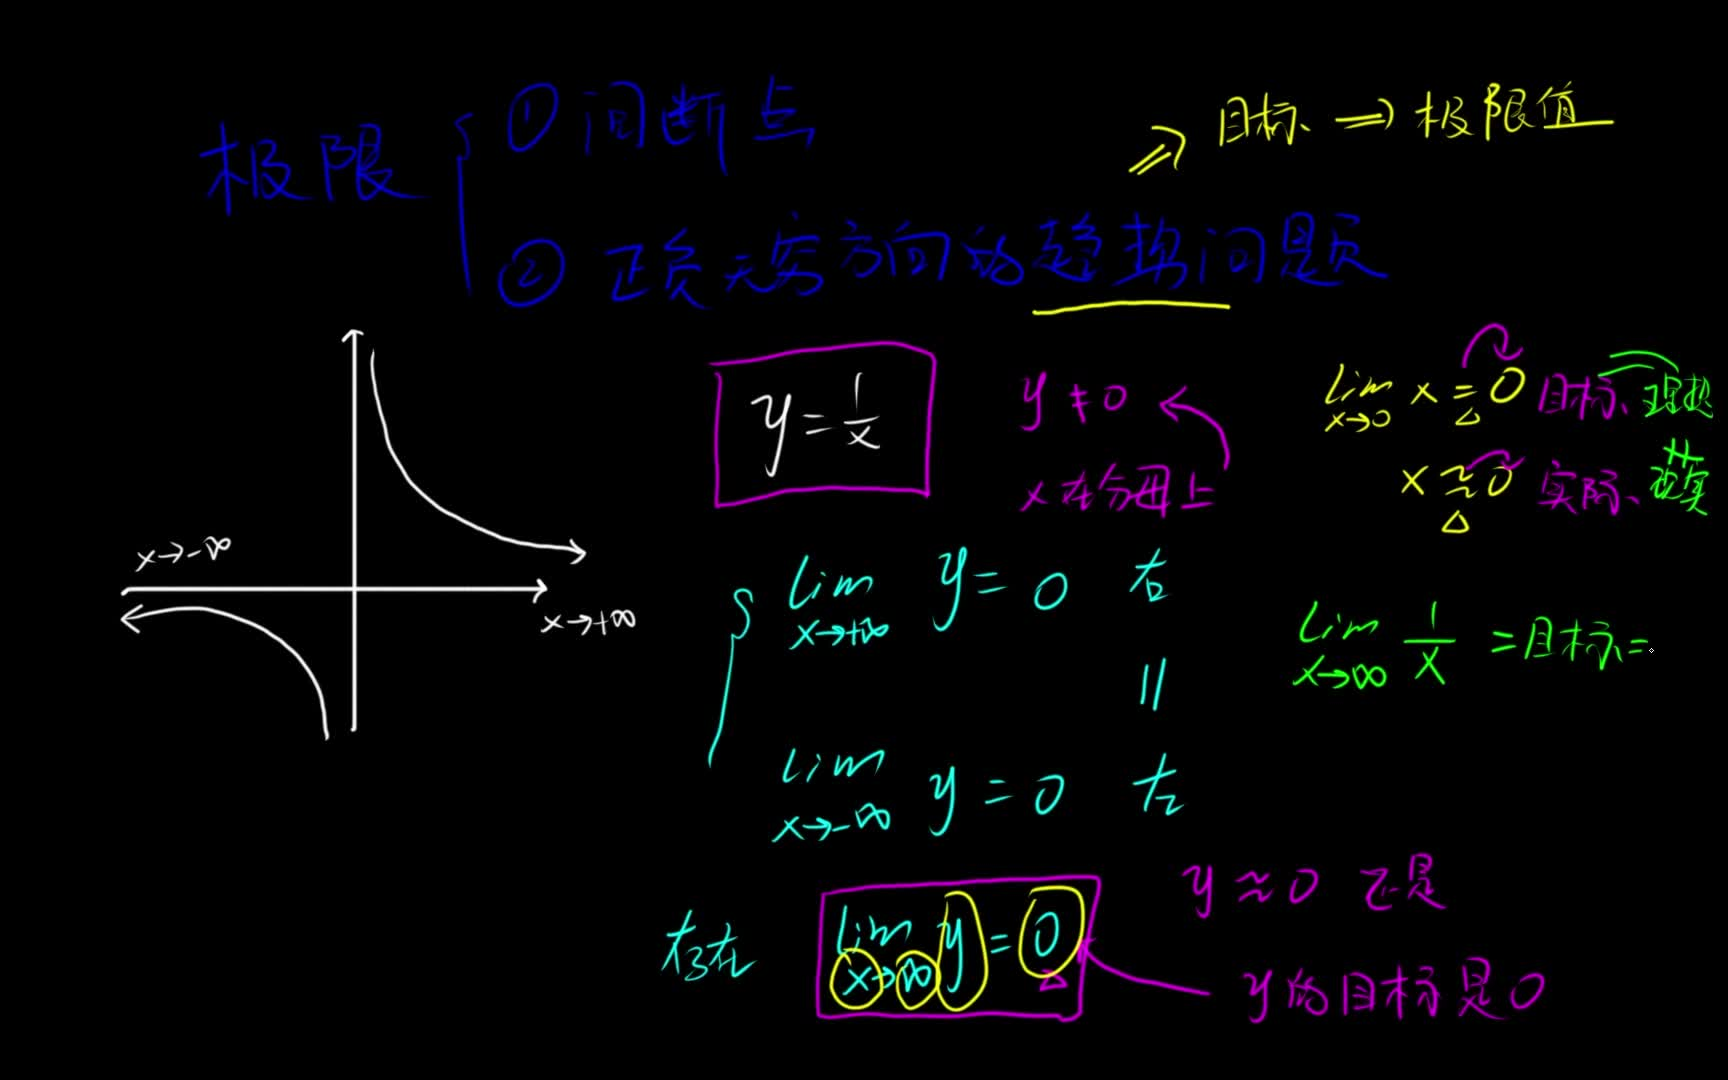 极限
① 间断点
② 正负无穷方向的趋势问题
⇒ 目标 ⇒ 极限值
y = 1/x
y ≠ 0
x在分母上
lim x→0 x = 0 目标 理想
x ≈ 0 实际 现实
x→-∞
x→+∞
lim x→+∞ y = 0 右
=
lim x→-∞ y = 0 左
lim x→∞ 1/x = 目标 =
存在 lim x→∞ y = 0
y ≈ 0 还是
y的目标是0